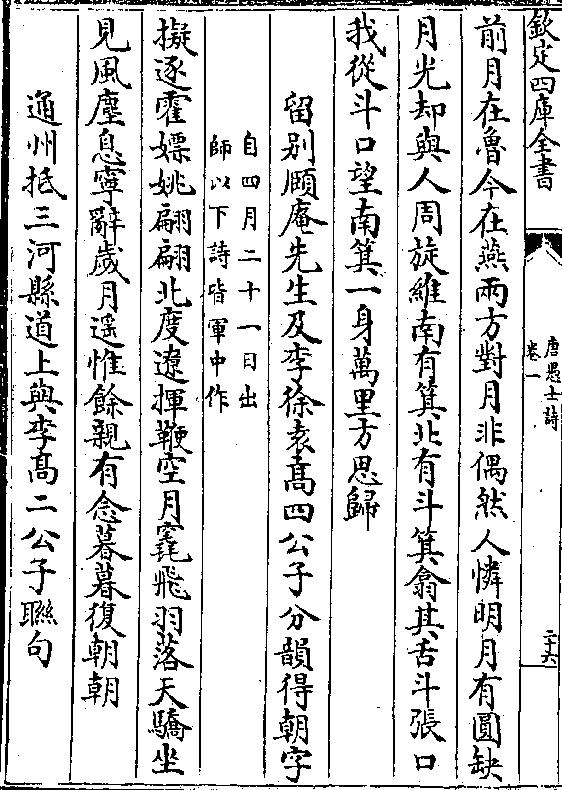 欽定四庫全書
唐愚士詩
卷一
二十六
前月在魯今在燕兩方對月非偶然人憐明月有圓缺
月光却與人周旋維南有箕北有斗箕翕其舌斗張口
我從斗口望南箕一身萬里方思歸
留别頤庵先生及李徐袁髙四公子分韻得朝字
自四月二十一日出
師以下詩皆軍中作
擬逐霍嫖姚翩翩北度遼揮鞭空月窟飛羽落天驕坐
見風塵息寧辭歲月遥惟餘親有念暮暮復朝朝
通州抵三河縣道上與李髙二公子聯句